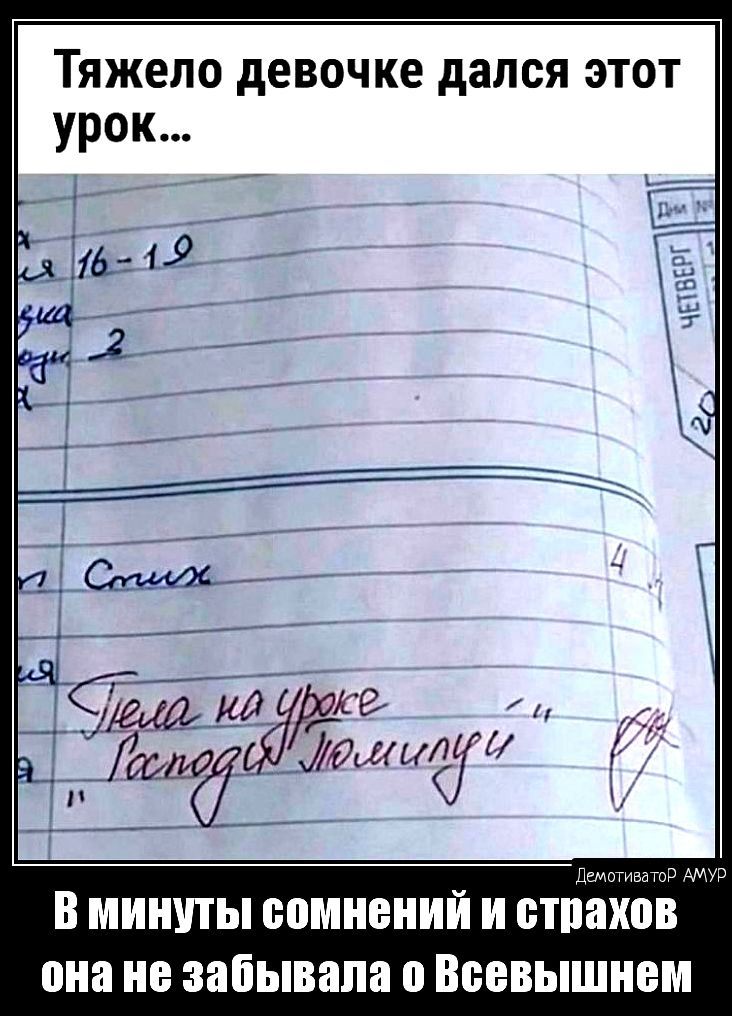 Тяжело девочке дался этот
урок...
Дни №
ЧЕТВЕРГ
16-19
2
20
Стих 4
Пела на уроке
"Господи Помилуй"
Демотиватор АМУР
В минуты сомнений и страхов
она не забывала о Всевышнем